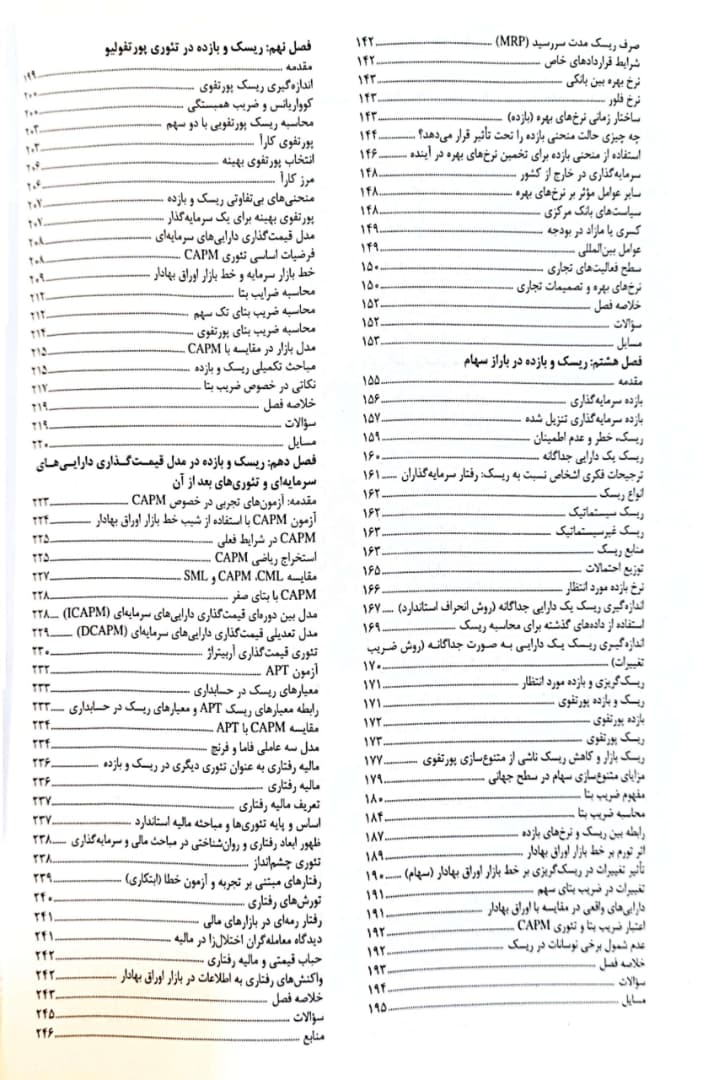 صرف ریسک مدت سررسید (MRP) ........ ۱۴۲
شرایط قراردادهای خاص ........ ۱۴۲
نرخ بهره بین بانکی ........ ۱۴۳
نرخ فلور ........ ۱۴۳
ساختار زمانی نرخ‌های بهره (بازده) ........ ۱۴۳
چه چیزی حالت منحنی بازده را تحت تأثیر قرار می‌دهد؟ ........ ۱۴۴
استفاده از منحنی بازده برای تخمین نرخ‌های بهره در آینده ........ ۱۴۶
سرمایه‌گذاری در خارج از کشور ........ ۱۴۸
سایر عوامل مؤثر بر نرخ‌های بهره ........ ۱۴۸
سیاست‌های بانک مرکزی ........ ۱۴۸
کسری یا مازاد در بودجه ........ ۱۴۹
عوامل بین‌المللی ........ ۱۴۹
سطح فعالیت‌های تجاری ........ ۱۵۰
نرخ‌های بهره و تصمیمات تجاری ........ ۱۵۰
خلاصه فصل ........ ۱۵۲
سؤالات ........ ۱۵۲
مسایل ........ ۱۵۳
فصل هشتم: ریسک و بازده در باراز سهام
مقدمه ........ ۱۵۵
بازده سرمایه‌گذاری ........ ۱۵۶
بازده سرمایه‌گذاری تنزیل شده ........ ۱۵۷
ریسک، خطر و عدم اطمینان ........ ۱۵۹
ریسک یک دارایی جداگانه ........ ۱۶۰
ترجیحات فکری اشخاص نسبت به ریسک: رفتار سرمایه‌گذاران ........ ۱۶۱
انواع ریسک ........ ۱۶۲
ریسک سیستماتیک ........ ۱۶۲
ریسک غیرسیستماتیک ........ ۱۶۳
منابع ریسک ........ ۱۶۳
توزیع احتمالات ........ ۱۶۵
نرخ بازده مورد انتظار ........ ۱۶۶
اندازه‌گیری ریسک یک دارایی جداگانه (روش انحراف استاندارد) ........ ۱۶۷
استفاده از داده‌های گذشته برای محاسبه ریسک ........ ۱۶۹
اندازه‌گیری ریسک یک دارایی به صورت جداگانه (روش ضریب
تغییرات) ........ ۱۷۰
ریسک‌گریزی و بازده مورد انتظار ........ ۱۷۱
ریسک و بازده پورتفوی ........ ۱۷۱
بازده پورتفوی ........ ۱۷۲
ریسک پورتفوی ........ ۱۷۳
ریسک بازار و کاهش ریسک ناشی از متنوع‌سازی پورتفوی ........ ۱۷۷
مزایای متنوع‌سازی سهام در سطح جهانی ........ ۱۷۹
مفهوم ضریب بتا ........ ۱۸۰
محاسبه ضریب بتا ........ ۱۸۴
رابطه بین ریسک و نرخ‌های بازده ........ ۱۸۷
اثر تورم بر خط بازار اوراق بهادار ........ ۱۸۹
تأثیر تغییرات در ریسک‌گریزی بر خط بازار اوراق بهادار (سهام) ........ ۱۹۰
تغییرات در ضریب بتای سهم ........ ۱۹۱
دارایی‌های واقعی در مقایسه با اوراق بهادار ........ ۱۹۱
اعتبار ضریب بتا و تئوری CAPM ........ ۱۹۲
عدم شمول برخی نوسانات در ریسک ........ ۱۹۲
خلاصه فصل ........ ۱۹۳
سؤالات ........ ۱۹۴
مسایل ........ ۱۹۵
فصل نهم: ریسک و بازده در تئوری پورتفولیو
مقدمه ........ ۱۹۹
اندازه‌گیری ریسک پورتفوی ........ ۲۰۰
کوواریانس و ضریب همبستگی ........ ۲۰۰
محاسبه ریسک پورتفویی با دو سهم ........ ۲۰۳
پورتفوی کارآ ........ ۲۰۳
انتخاب پورتفوی بهینه ........ ۲۰۶
مرز کارآ ........ ۲۰۶
منحنی‌های بی‌تفاوتی ریسک و بازده ........ ۲۰۷
پورتفوی بهینه برای یک سرمایه‌گذار ........ ۲۰۷
مدل قیمت‌گذاری دارایی‌های سرمایه‌ای ........ ۲۰۸
فرضیات اساسی تئوری CAPM ........ ۲۰۸
خط بازار سرمایه و خط بازار اوراق بهادار ........ ۲۰۹
محاسبه ضرایب بتا ........ ۲۱۲
محاسبه ضریب بتای تک سهم ........ ۲۱۲
محاسبه ضریب بتای پورتفوی ........ ۲۱۴
مدل بازار در مقایسه با CAPM ........ ۲۱۵
مباحث تکمیلی ریسک و بازده ........ ۲۱۵
نکاتی در خصوص ضریب بتا ........ ۲۱۷
خلاصه فصل ........ ۲۱۹
سؤالات ........ ۲۱۹
مسایل ........ ۲۲۰
فصل دهم: ریسک و بازده در مدل قیمت‌گذاری دارایی‌های
سرمایه‌ای و تئوری‌های بعد از آن
مقدمه: آزمون‌های تجربی در خصوص CAPM ........ ۲۲۳
آزمون CAPM با استفاده از شیب خط بازار اوراق بهادار ........ ۲۲۴
CAPM در شرایط فعلی ........ ۲۲۵
استخراج ریاضی CAPM ........ ۲۲۵
مقایسه CAPM ،CML و SML ........ ۲۲۷
CAPM با بتای صفر ........ ۲۲۸
مدل بین دوره‌ای قیمت‌گذاری دارایی‌های سرمایه‌ای (ICAPM) ........ ۲۲۸
مدل تعدیلی قیمت‌گذاری دارایی‌های سرمایه‌ای (DCAPM) ........ ۲۲۹
تئوری قیمت‌گذاری آربیتراژ ........ ۲۳۰
آزمون APT ........ ۲۳۲
معیارهای ریسک در حسابداری ........ ۲۳۳
رابطه معیارهای ریسک APT و معیارهای ریسک در حسابداری ........ ۲۳۳
مقایسه CAPM با APT ........ ۲۳۴
مدل سه عاملی فاما و فرنچ ........ ۲۳۴
مالیه رفتاری به عنوان تئوری دیگری در ریسک و بازده ........ ۲۳۶
مالیه رفتاری ........ ۲۳۶
تعریف مالیه رفتاری ........ ۲۳۷
اساس و پایه تئوری‌ها و مباحثه مالیه استاندارد ........ ۲۳۷
ظهور ابعاد رفتاری و روان‌شناختی در مباحث مالی و سرمایه‌گذاری ........ ۲۳۸
تئوری چشم‌انداز ........ ۲۳۸
رفتارهای مبتنی بر تجربه و آزمون خطا (ابتکاری) ........ ۲۳۹
تورش‌های رفتاری ........ ۲۴۰
رفتار رمه‌ای در بازارهای مالی ........ ۲۴۱
دیدگاه معامله‌گران اختلال‌زا در مالیه ........ ۲۴۱
حباب قیمتی و مالیه رفتاری ........ ۲۴۲
واکنش‌های رفتاری به اطلاعات در بازار اوراق بهادار ........ ۲۴۲
خلاصه فصل ........ ۲۴۳
سؤالات ........ ۲۴۵
منابع ........ ۲۴۶